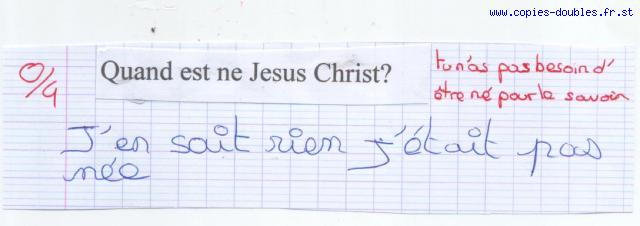 www.copies-doubles.fr.st
0/4
Quand est ne Jesus Christ?
tu n'as pas besoin d'
être né pour le savoir
J'en sait rien j'était pas
née